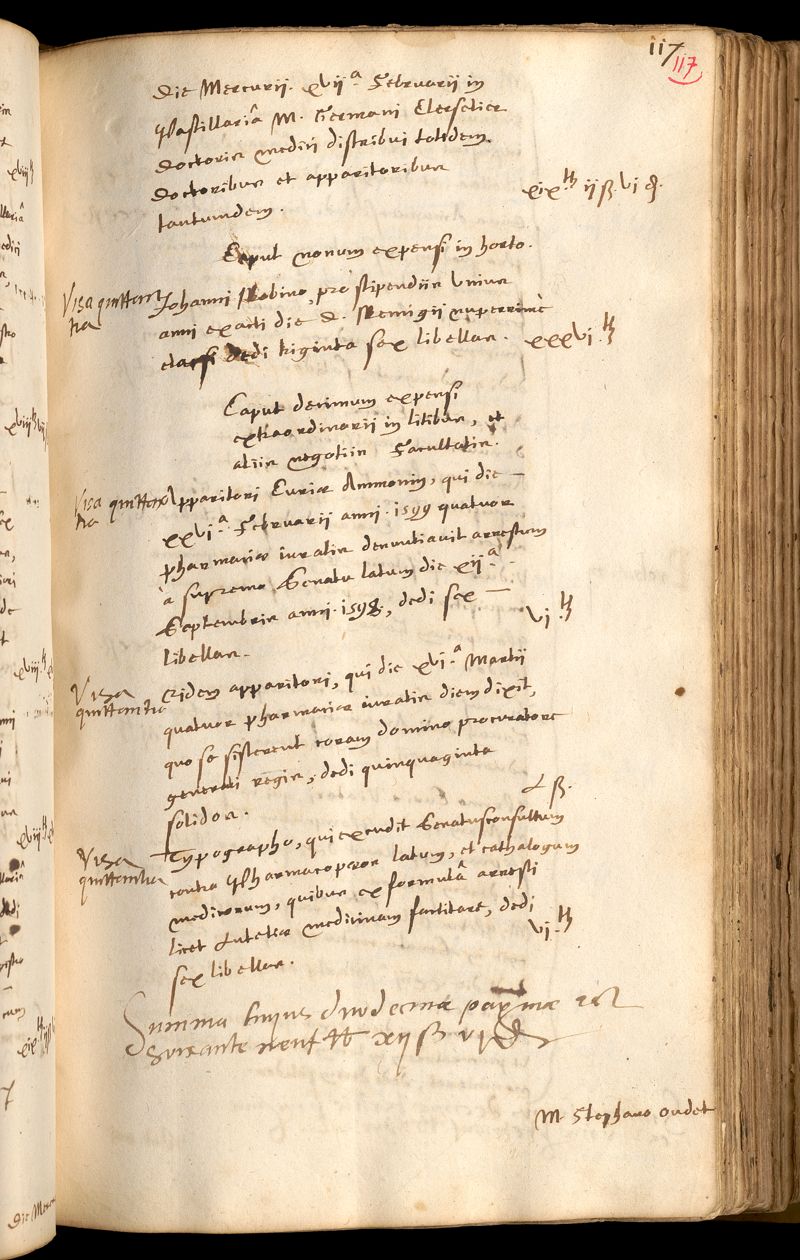 117
117
Die Mercurii. xvii.ª Februarii in
Pastillariâ M. Germani Clerselier
doctoris medici distribui totidem
doctoribus et apparitoribus
tantumdem.
xix.tt ii ß. vi d.
Caput nonum expensi in horto.
Visa quittantia
Johanni Robino, pro stipendiis unius
anni exacti die D. Remigii nuperrimè
elapsi dedi triginta sex libellas.
xxxvi.tt
Caput decimum expensi
extraordinarii in litibus, et
aliis negotiis Facultatis.
Visa quittantia
Apparitori Curiæ Ammonin, qui die
xxvi.ª Februarii anni. 1599 quatuor
pharmaciæ iuratis denuntiavit arrestum
à supremo Senatu latum die xii.ª
Septembris anni. 1598, dedi sex
libellas.
vi.tt
Visa quittantia
Eidem apparitori, qui die xvi.ª Martii
quatuor pharmaciæ iuratis diem dixit,
quo se sisterent coram domino procuratore
generali regis, dedi quinquaginta
solidos.
L ß.
Visa quittantia
Typographo, qui excudit Senatusconsultum
contra Pharmacopæos latum, et cathalogum
medicorum, quibus ex formulâ arresti
licet Lutetiæ medicinam factitare, dedi
sex libellas.
vi.tt
Summa huius duodecimæ paginæ est
soixante neuf tt xii ß vi d
M Stephano oudet